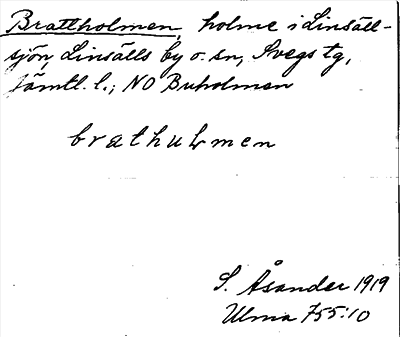 Brattholmen, holme i Linsäll-
sjön, Linsälls by o. sn, Svegs tg,
Jämtl. l.; NO Buholmen
brathułmen
S. Åsander 1919
Ulma 755:10